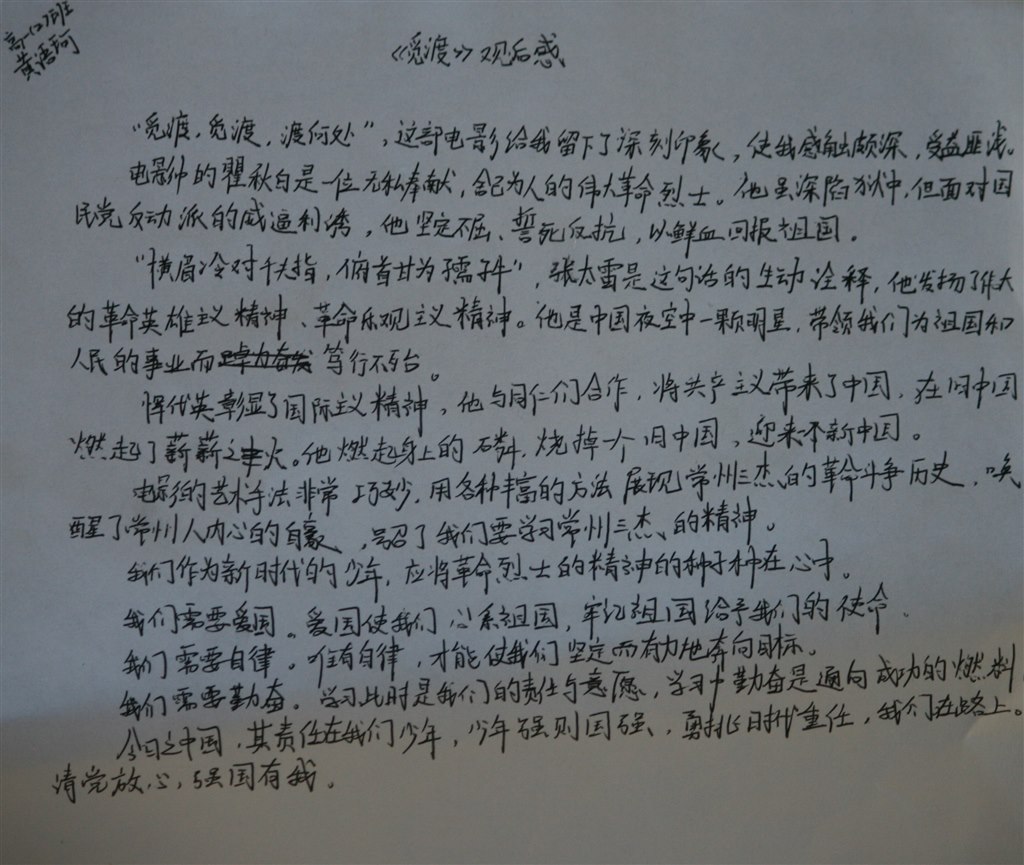 高一(2)班
黄语珂
《觅渡》观后感
“觅渡，觅渡，渡何处”，这部电影给我留下了深刻印象，使我感触颇深，受益匪浅。
电影中的瞿秋白是一位无私奉献，舍己为人的伟大革命烈士。他虽深陷狱中，但面对国
民党反动派的威逼利诱，他坚定不屈、誓死反抗，以鲜血回报祖国。
“横眉冷对千夫指，俯首甘为孺子牛”，张太雷是这句话的生动诠释，他发扬了伟大
的革命英雄主义精神、革命乐观主义精神。他是中国夜空中一颗明星，带领我们为祖国和
人民的事业而笃行不殆。
恽代英彰显了国际主义精神，他与同仁们合作，将共产主义带来了中国，在旧中国
燃起了薪薪之火。他燃起身上的磷，烧掉一个旧中国，迎来一个新中国。
电影的艺术手法非常巧妙，用各种丰富的方法展现常州三杰的革命斗争历史，唤
醒了常州人内心的自豪，号召了我们要学习常州三杰的精神。
我们作为新时代的少年，应将革命烈士的精神的种子种在心中。
我们需要爱国。爱国使我们心系祖国，牢记祖国给予我们的使命。
我们需要自律。唯有自律，才能使我们坚定而有力地奔向目标。
我们需要勤奋。学习此时是我们的责任与意愿，学习中勤奋是通向成功的燃料，
今日之中国，其责任在我们少年，少年强则国强，勇挑时代重任，我们在路上。
请党放心，强国有我。